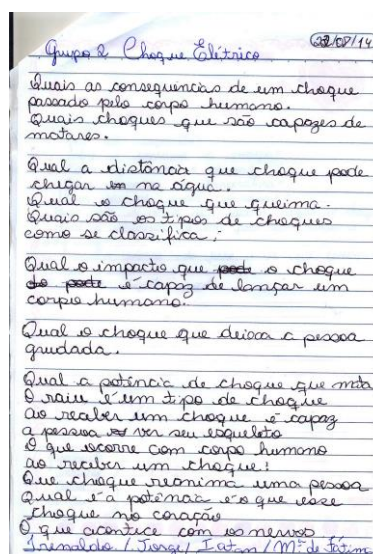 22/08/14
Grupo 2 Choque Elétrico
Quais as consequencias de um choque
passado pelo corpo humano.
Quais choques que são capazes de
matares.
Qual a distância que choque pode
chegar na água.
Qual o choque que queima.
Quais são os tipos de choques
como se classifica;
Qual o impacto que pode o choque
do pode é capaz de lançar um
corpo humano.
Qual o choque que deixa a pessoa
grudada.
Qual a potência de choque que mata
O raiu é um tipo de choque
ao receber um choque é capaz
a pessoa ver seu esqueleto
O que ocorre com corpo humano
ao receber um choque!
Que choque reanima uma pessoa
Qual é a potência e o que esse
choque no coração
O que acontece com os nervos
Irenaldo / Jorge /